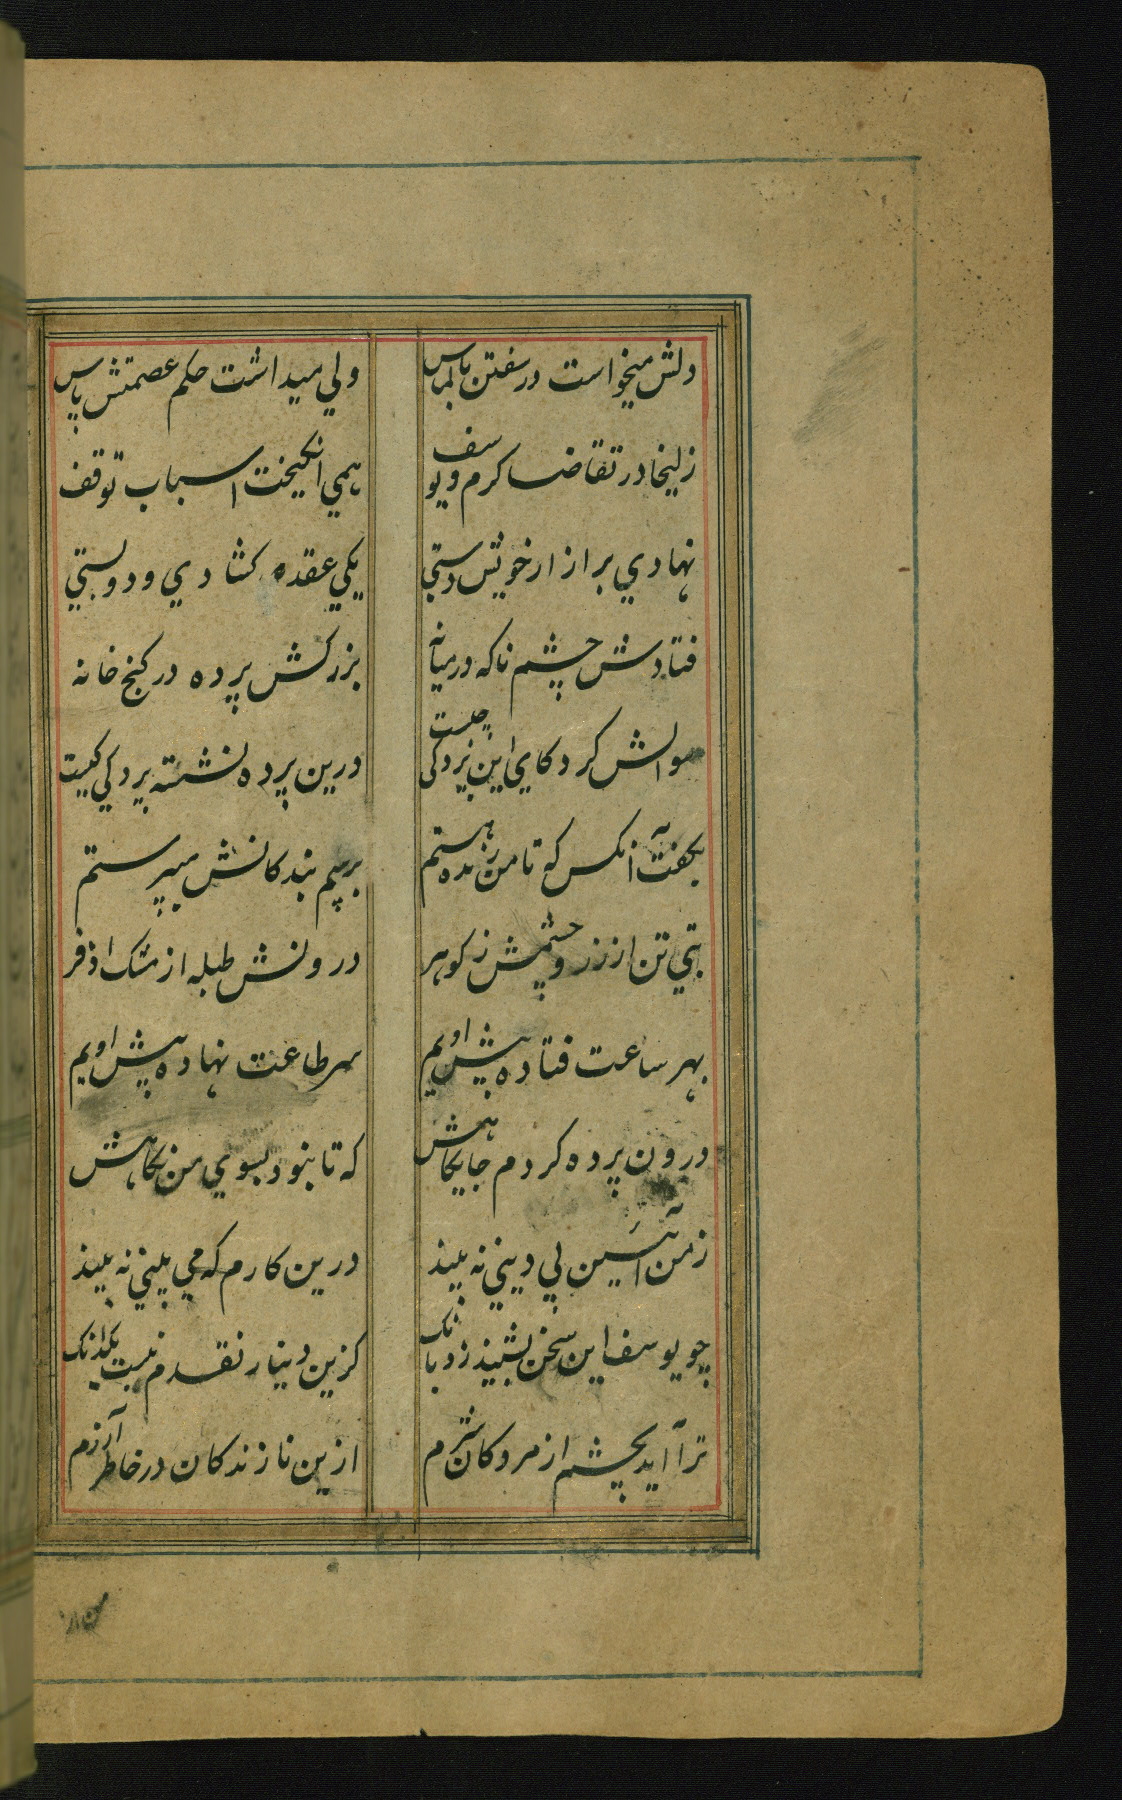 دلش میخواست در سفتن بالماس
ولي میداشت حکم عصمتش پاس
زلیخا در تقاضا کرم و یوسف
همي انکیخت اسباب توقف
نهادي بر ازار خویش دستي
یکي عقده کشادي و دو بستي
فتادش چشم ناکه در میانه
بزرکش پرده در کنج خانه
سوالش کرد کاي این پردکي چیست
درین پرده نشسته پردکي کیست
بکفت آنکس که تا من زنده هستم
برسم بندکانش میپرستم
بتي تن از زر و چشمش ز کوهر
درونش طبله از مشک اذفر
بهر ساعت فتاده پیش اویم
سر طاعت نهاده پیش اویم
درون پرده کردم جایکاهش
که تا نبود بسوي من نکاهش
ز من آئین بي دیني نه بیند
درین کارم که مي بیني نه بیند
چو یوسف این سخن بشنید زد بانک
کزین دینار نقدم نیست یکدانک
ترا آید بچشم از مردکان شرم
ازین نازندکان در خاطر آزرم